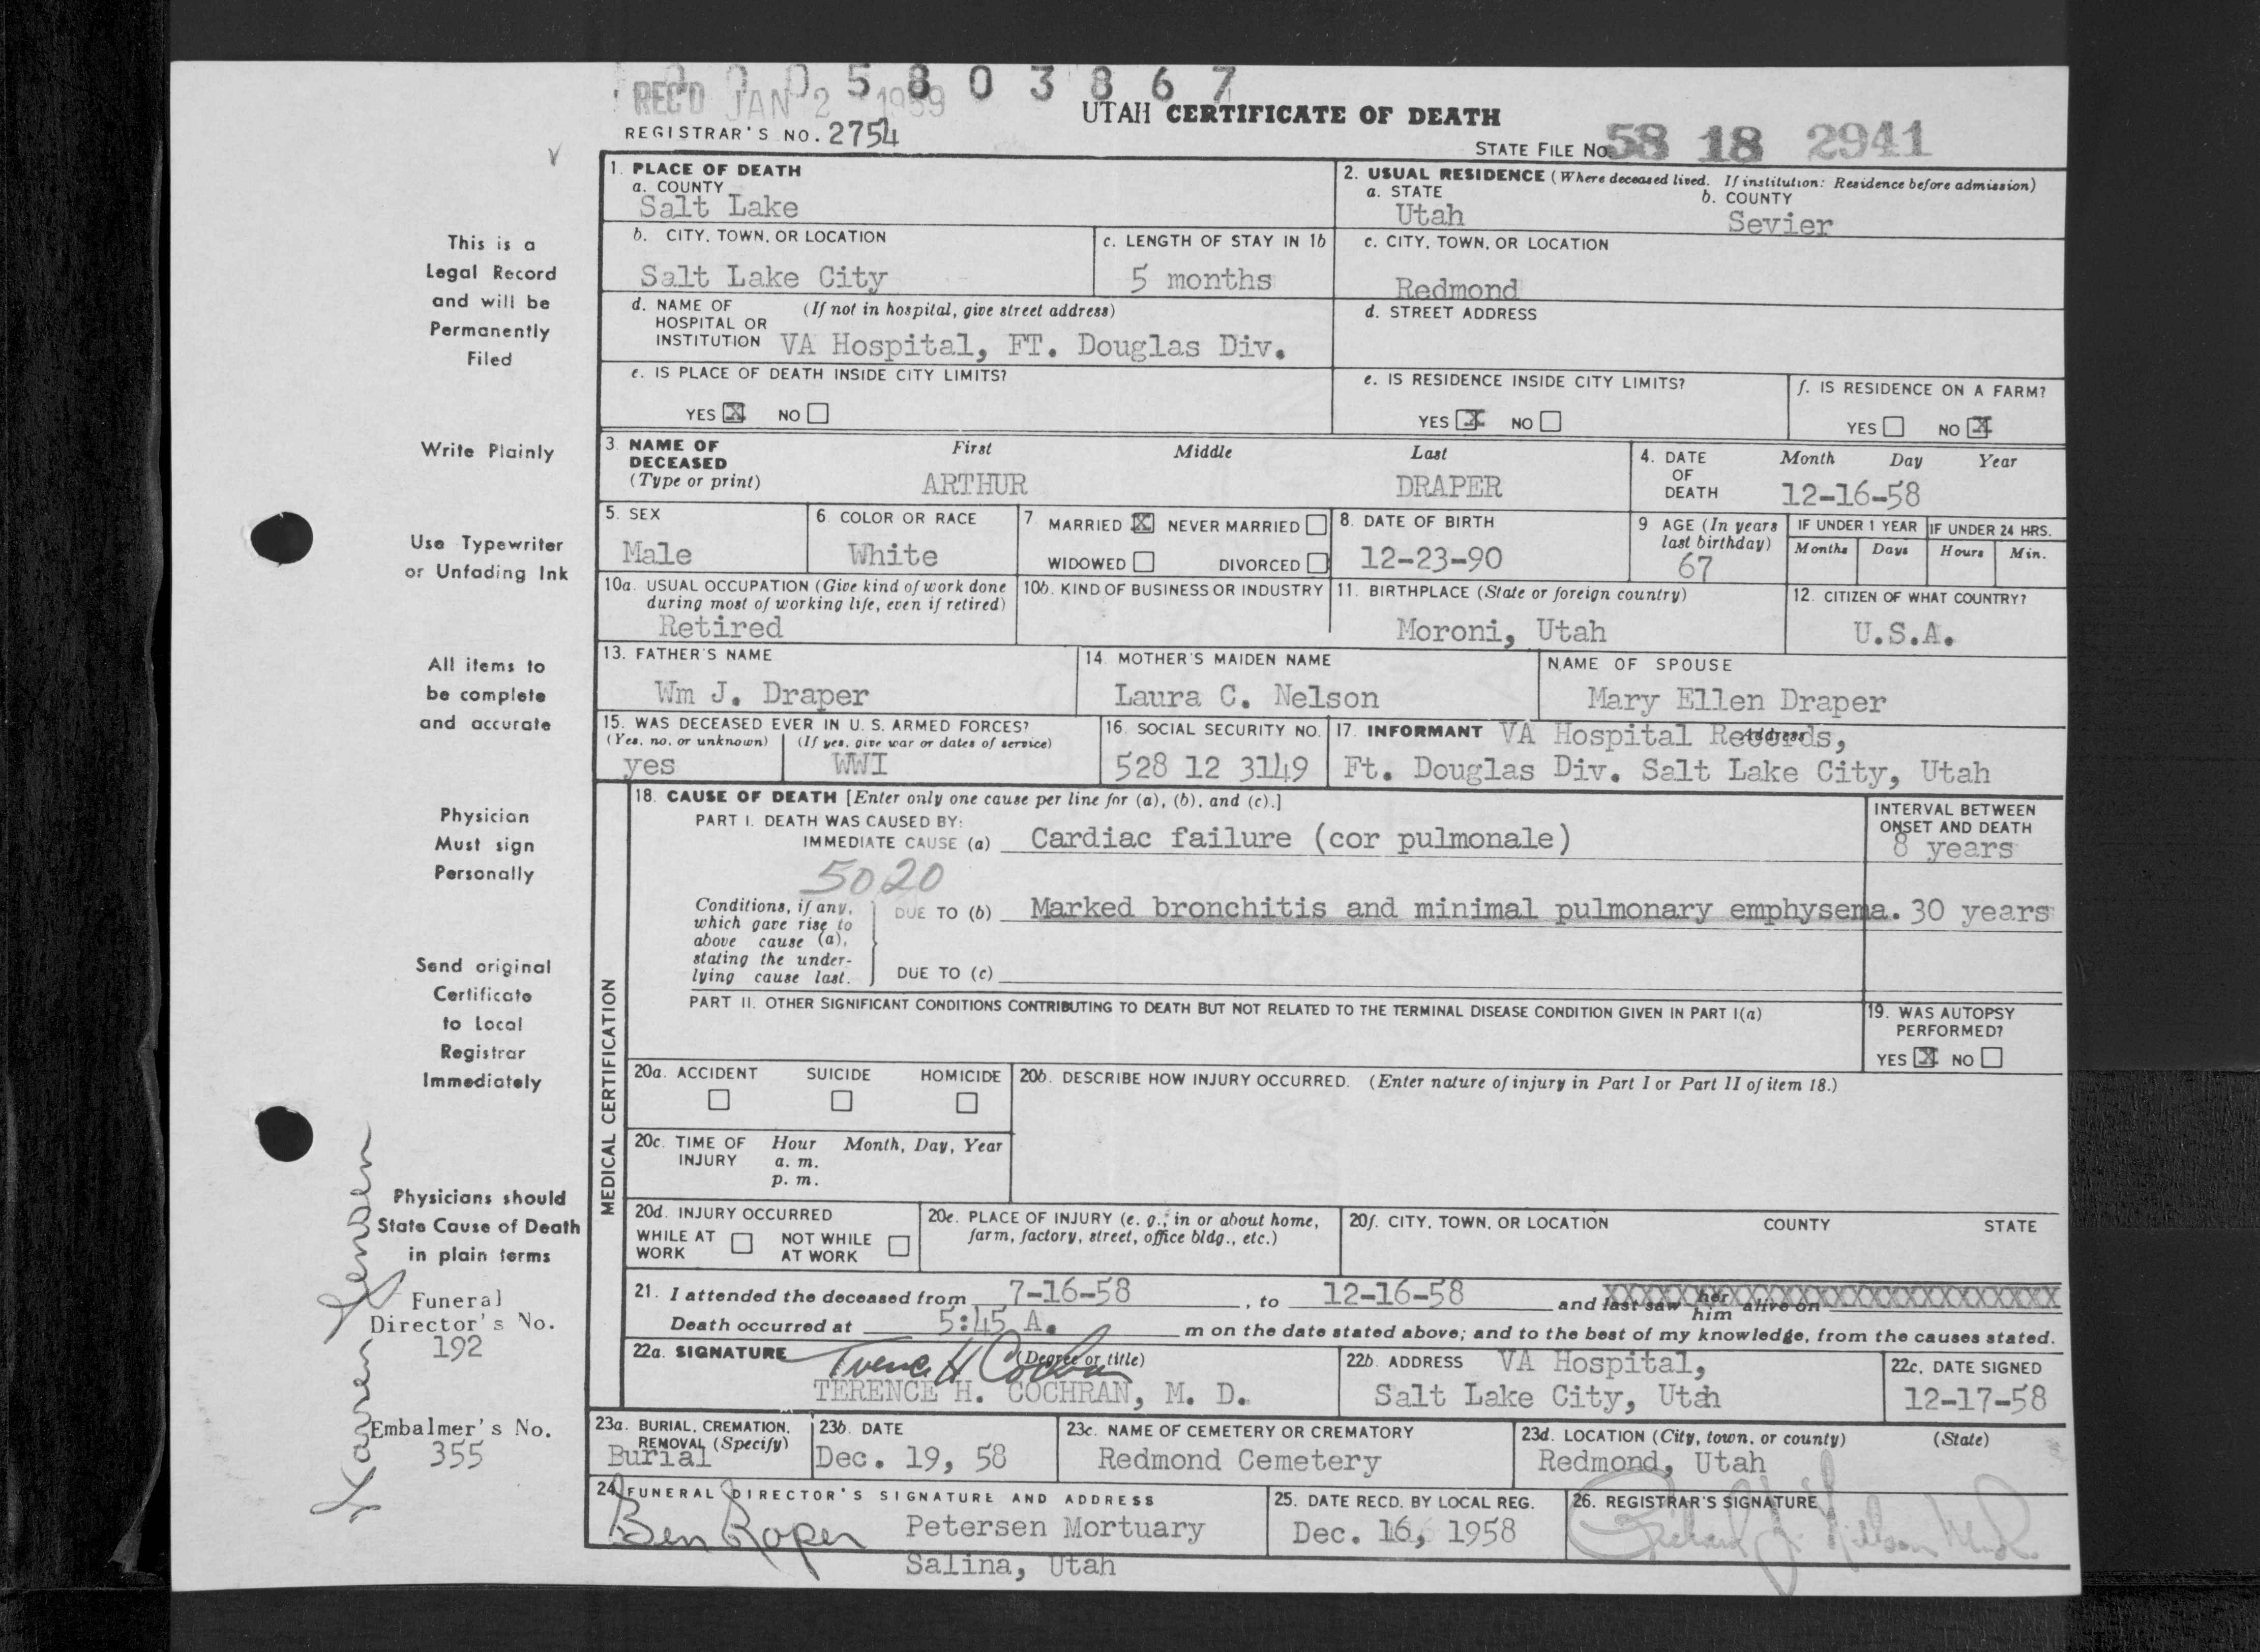 0 0 0 5 8 0 3 8 6 7
REC'D JAN 2 1959
UTAH CERTIFICATE OF DEATH
REGISTRAR'S NO. 2754
STATE FILE No. 58 18 2941
This is a
Legal Record
and will be
Permanently
Filed
Write Plainly
Use Typewriter
or Unfading Ink
All items to
be complete
and accurate
Physician
Must sign
Personally
Send original
Certificate
to Local
Registrar
Immediately
Physicians should
State Cause of Death
in plain terms
Funeral
Director's No.
192
Embalmer's No.
355
Karen Jensen
1. PLACE OF DEATH
a. COUNTY
Salt Lake
2. USUAL RESIDENCE (Where deceased lived. If institution: Residence before admission)
a. STATE b. COUNTY
Utah Sevier
b. CITY, TOWN, OR LOCATION
Salt Lake City
c. LENGTH OF STAY IN 1b
5 months
c. CITY, TOWN, OR LOCATION
Redmond
d. NAME OF (If not in hospital, give street address)
HOSPITAL OR
INSTITUTION VA Hospital, FT. Douglas Div.
d. STREET ADDRESS
e. IS PLACE OF DEATH INSIDE CITY LIMITS?
YES X NO
e. IS RESIDENCE INSIDE CITY LIMITS?
YES X NO
f. IS RESIDENCE ON A FARM?
YES NO X
3. NAME OF DECEASED (Type or print)
First Middle Last
ARTHUR DRAPER
4. DATE OF DEATH
Month Day Year
12-16-58
5. SEX
Male
6. COLOR OR RACE
White
7. MARRIED X NEVER MARRIED
WIDOWED DIVORCED
8. DATE OF BIRTH
12-23-90
9 AGE (In years last birthday)
67
IF UNDER 1 YEAR
Months Days
IF UNDER 24 HRS.
Hours Min.
10a. USUAL OCCUPATION (Give kind of work done
during most of working life, even if retired)
Retired
10b. KIND OF BUSINESS OR INDUSTRY
11. BIRTHPLACE (State or foreign country)
Moroni, Utah
12. CITIZEN OF WHAT COUNTRY?
U.S.A.
13. FATHER'S NAME
Wm J. Draper
14. MOTHER'S MAIDEN NAME
Laura C. Nelson
NAME OF SPOUSE
Mary Ellen Draper
15. WAS DECEASED EVER IN U. S. ARMED FORCES?
(Yes, no, or unknown) (If yes, give war or dates of service)
yes WWI
16. SOCIAL SECURITY NO.
528 12 3149
17. INFORMANT VA Hospital Records, Address
Ft. Douglas Div. Salt Lake City, Utah
MEDICAL CERTIFICATION
18. CAUSE OF DEATH [Enter only one cause per line for (a), (b), and (c).]
PART I. DEATH WAS CAUSED BY:
IMMEDIATE CAUSE (a) Cardiac failure (cor pulmonale)
INTERVAL BETWEEN
ONSET AND DEATH
8 years
5020
Conditions, if any,
which gave rise to
above cause (a),
stating the under-
lying cause last.
DUE TO (b) Marked bronchitis and minimal pulmonary emphysema. 30 years
DUE TO (c)
PART II. OTHER SIGNIFICANT CONDITIONS CONTRIBUTING TO DEATH BUT NOT RELATED TO THE TERMINAL DISEASE CONDITION GIVEN IN PART I(a)
19. WAS AUTOPSY
PERFORMED?
YES X NO
20a. ACCIDENT SUICIDE HOMICIDE
20b. DESCRIBE HOW INJURY OCCURRED. (Enter nature of injury in Part I or Part II of item 18.)
20c. TIME OF INJURY
Hour Month, Day, Year
a. m.
p. m.
20d. INJURY OCCURRED
WHILE AT WORK NOT WHILE AT WORK
20e. PLACE OF INJURY (e. g., in or about home,
farm, factory, street, office bldg., etc.)
20f. CITY, TOWN, OR LOCATION COUNTY STATE
21. I attended the deceased from 7-16-58, to 12-16-58 and last saw her him alive on XXXXXXXXXXXXXXXXXXXXXXXX
Death occurred at 5:45 A. m on the date stated above; and to the best of my knowledge, from the causes stated.
22a. SIGNATURE (Degree or title)
Terence H Cochran
TERENCE H. COCHRAN, M. D.
22b. ADDRESS VA Hospital,
Salt Lake City, Utah
22c. DATE SIGNED
12-17-58
23a. BURIAL, CREMATION,
REMOVAL (Specify)
Burial
23b. DATE
Dec. 19, 58
23c. NAME OF CEMETERY OR CREMATORY
Redmond Cemetery
23d. LOCATION (City, town, or county) (State)
Redmond, Utah
24 FUNERAL DIRECTOR'S SIGNATURE AND ADDRESS
Ben Roper Petersen Mortuary
Salina, Utah
25. DATE RECD. BY LOCAL REG.
Dec. 16, 1958
26. REGISTRAR'S SIGNATURE